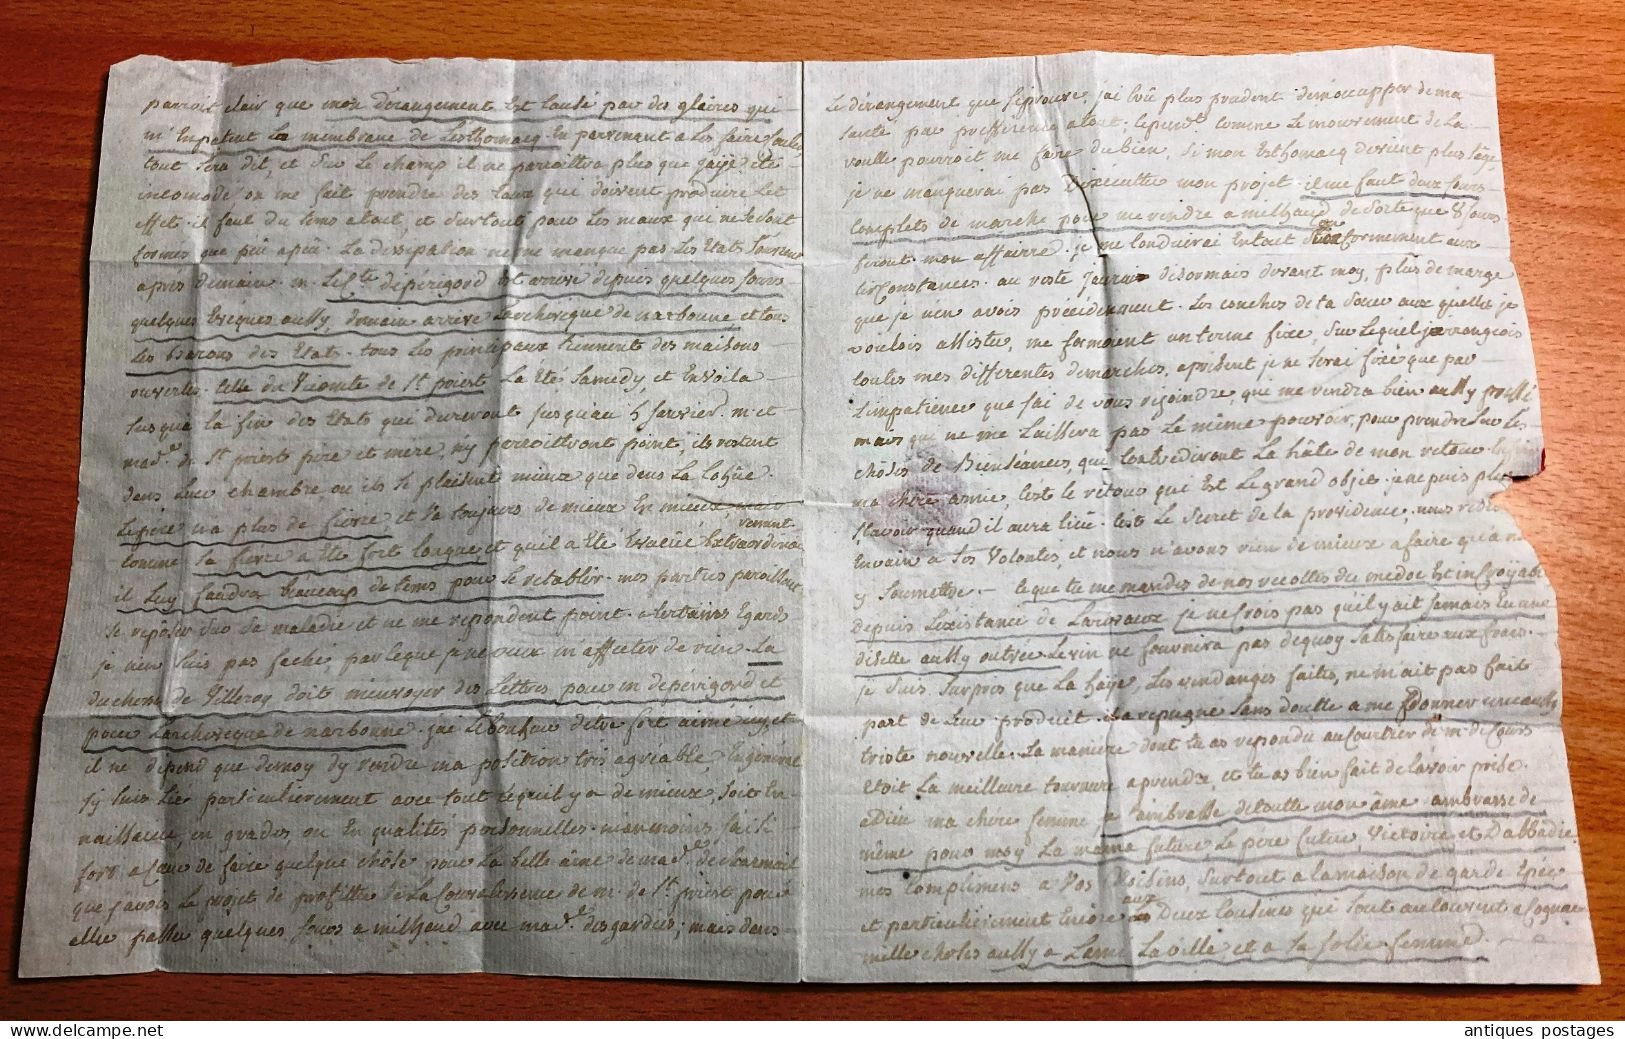 parroit clair que mon dérangement est causé par des glaires qui
m'empatent la membrane de L'esthomacq. En parvenant a les faire couler
tout sera dit, et sur le champ il ne paroittra plus que j'aye été
incomodé on me fait prendre des eaux que doivent produire cet
effet. il faut du tems a tout, et surtout pour les maux que ne se sont
formés que peu a peu. La dissipation ne me manque pas. Les Etats s'ouvrent
après demain. M. Le Cte de périgord est arrivé depuis quelques jours
quelques Evêques aussy, demain arrive L'archevêque de narbonne et tous
les Barons des Etats. tous les principaux tiennent des maisons
ouvertes. celle du Vicomte de St priest L'a été samedy et En voila
jusqua la fin des Etats qui dureront jusqu'au 5 janvier. m. et
made de St priest pere et mere, n'y paroittront point, ils restent
dans leur chambre ou ils se plaisent mieux que dans La Cohüe.
Le pere n'a plus de fievre et va toujours de mieux En mieux
comme sa fievre a été fort longue et quil a été évacué Extraordinairement
il luy faudra beaucoup de tems pour se retablir. mes parties paroissent
se repôser sur sa maladie et ne me repondent point. a certains Egards
je n'en suis pas faché, parceque je ne veux m'affecter de rien. La
duchesse de Villeroy doit m'envoyer des Lettres pour m. de périgord et
pour L'archevêque de narbonne. j'ai le bonheur d'etre fort aimé icy, et
il ne depend que de moy d'y rendre ma position tres agréable, En général
j'y suis lié particulierement avec tout ce quil y a de mieux, soit En
naissance, en grades, ou En qualités personnelles. maman moins fait
fort a cœur de faire quelque chôse pour La belle âme de made de charmail
que j'avois Le projet de profitter de La Convalessence de m. de St priest pour
aller passer quelques jours a milhaud avec made desgardies; mais dans
Le dérangement que j'eprouve, j'ai crû plus prudent de m'occupper de ma
santé par prefference a tout. Cependt comme Le mouvement de La
roulle pourroit me faire du bien, si mon Esthomacq devient plus leger
je ne manquerai pas d'exécutter mon projet. il me faut deux jours
complets de marche pour me rendre a milhaud de sorte que 8 jours
feront mon affaire. je me conduirai En tout conformement aux
circonstances. au reste j'aurai désormais devant moy, plus de marge
que je n'en avois précédemment. Les couches de ta sœur aux quelles je
voulois assister, me formoient un terme fixe, sur Lequel j'arrangeois
toutes mes differentes demarches, apresent je ne serai fixé que par
L'impatience que j'ai de vous rejoindre, qui me rendra bien aussy pressé
mais qui ne me Laissera pas Le même pouvoir, pour prendre sur Les
chôses de Bienséances, qui contrediront La hâte de mon retour. Enfin
ma chere amie, c'est le retour qui Est Le grand objet. je ne puis plus
sçavoir quand il aura lieu. c'est Le secret de la providence, nous
En vain a ses volontes, et nous n'avons rien de mieux a faire qu'a nous
y soumettre. — ce que tu me mandes de nos recoltes du medoc Est incroyable
depuis L'existance de Larivaux je ne crois pas qu'il y ait jamais Eu une
disette aussy outrée. Le vin ne fournira pas de quoy satisfaire aux frais.
je suis surpris que La haye, Les vendanges faites, ne m'ait pas fait
part de leur produit. il a repugné sans doutte a me donner une aussy
triste nouvelle. La maniere dont tu as repondu au Courtier de m. de Cours
etoit La meilleure tournure a prendre, et tu as bien fait de L'avoir prise.
adieu ma chere femme, je t'ambrasse de toutte mon âme. ambrasse de
même pour moy La mama future, Le pere futur, Victoire et D'abbadie.
mes complimens a Vos Voisins, surtout a La maison de garde Epée
et particulierement Encore aux Deux Cousines qui sont au couvent a Cognac
mille choses aussy a L'ame La ville et a La folie femme.
antiques postages